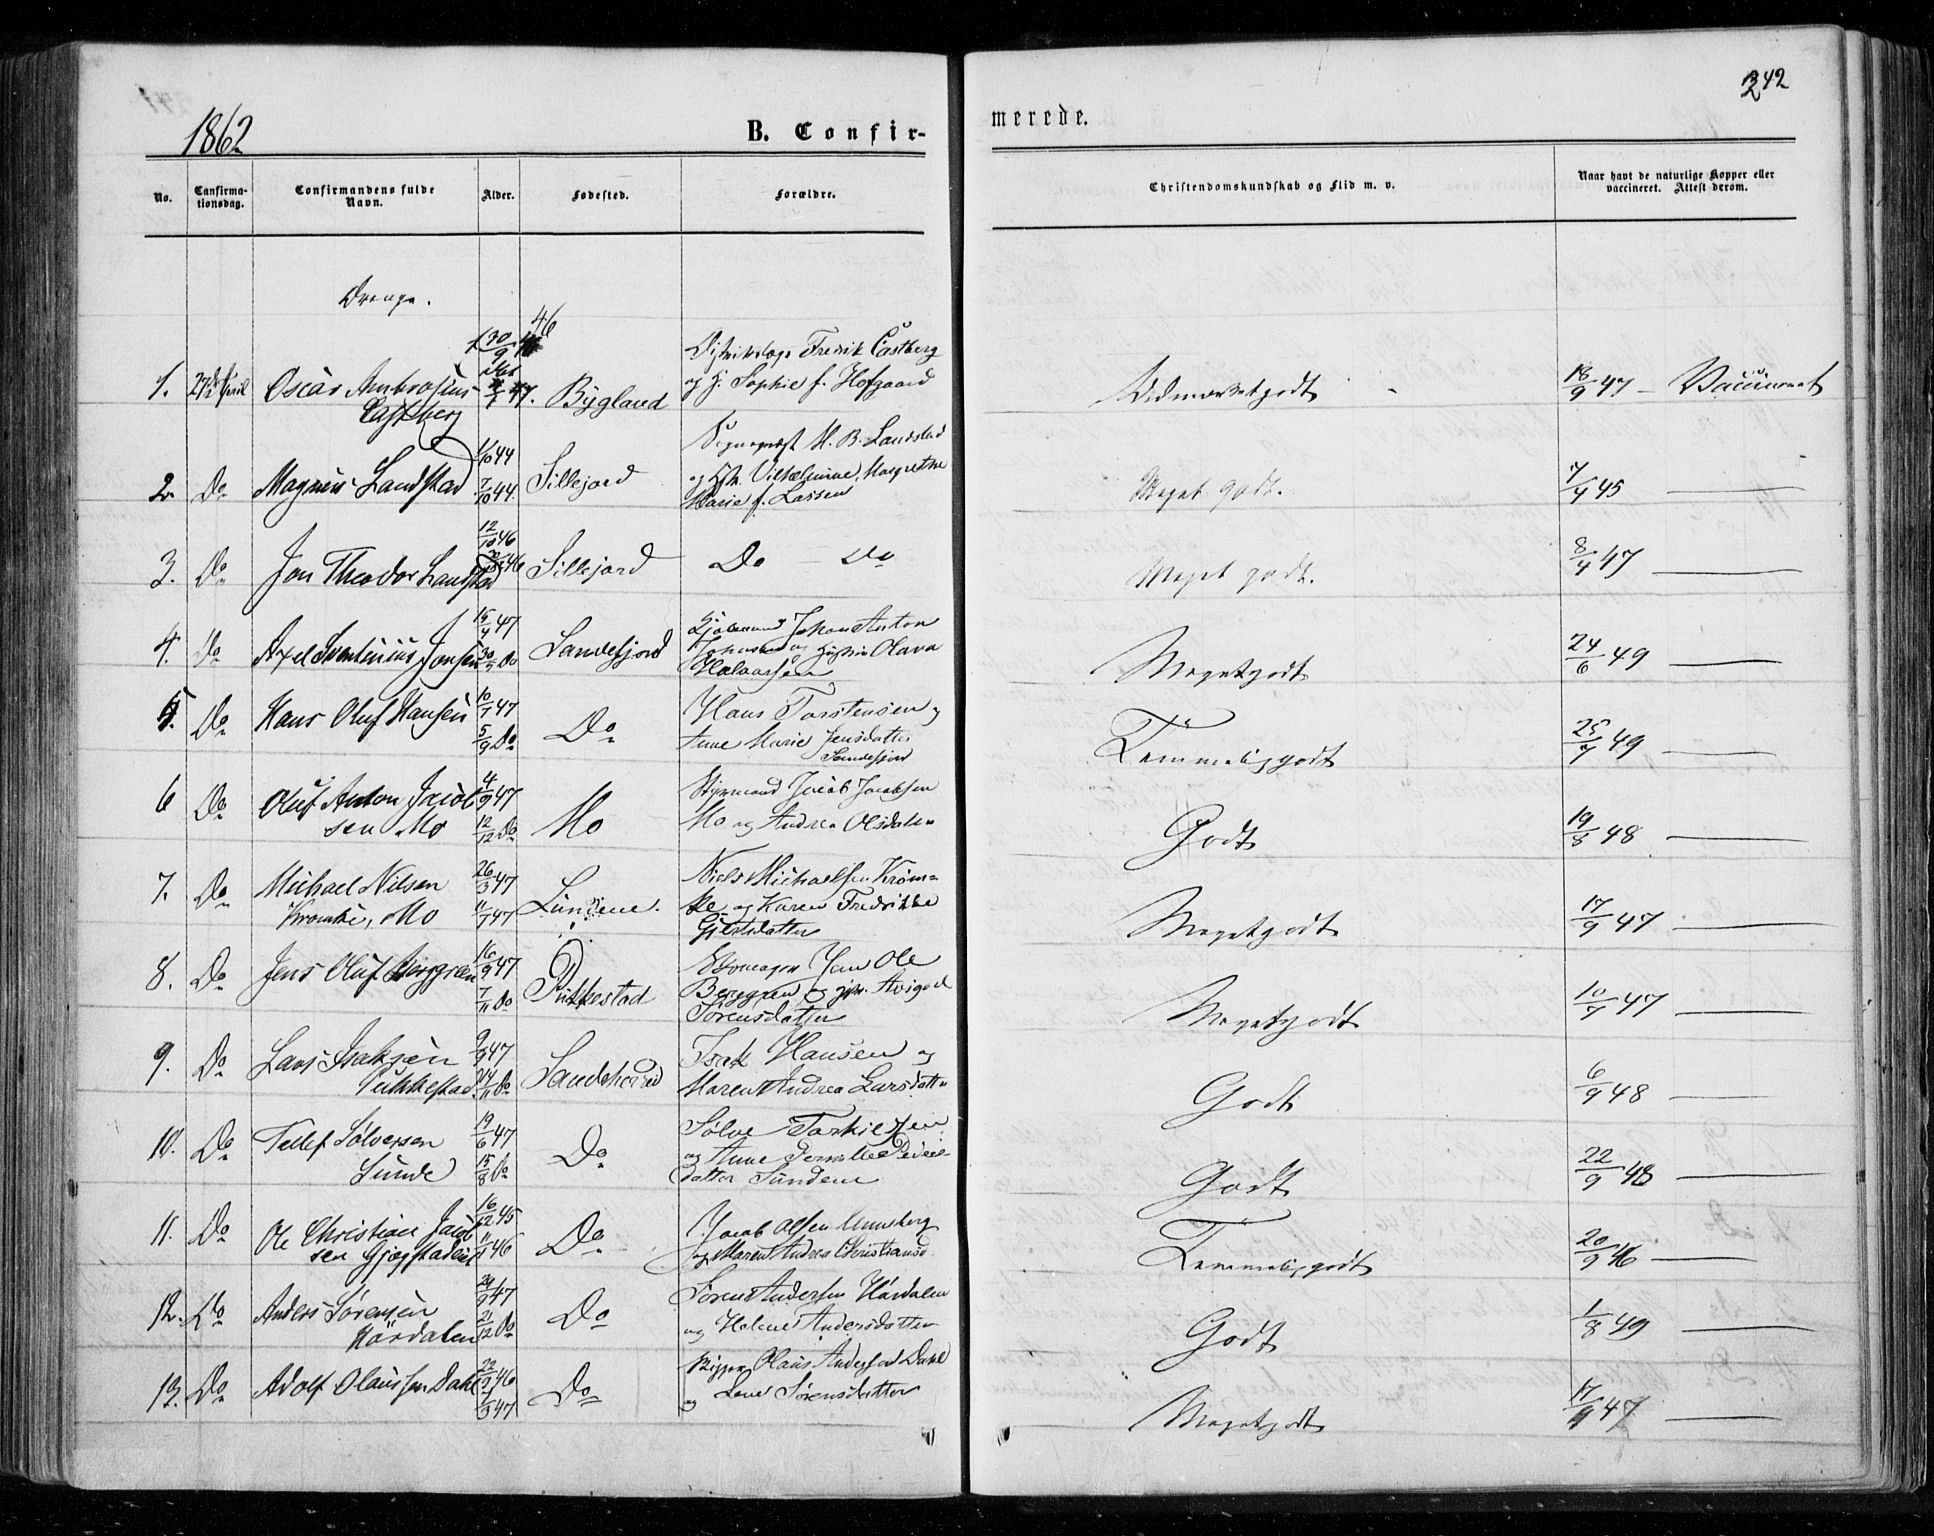 1862
B. Confir-
merede.
242
No.
Confirma-
tionsdag.
Confirmandens fulde
Navn.
Alder.
Fødested.
Forældre.
Christendomskundskab og Flid m. v.
Naar havt de naturlige Kopper eller
vaccineret. Attest derom.
Drenge.
1. 27de April Oscar Ambrosius
Castberg
30/9 46
47. Bygland
Distriktslæge Fredrik Castberg
og H. Sophie f. Hofgaard
Udmærket godt
18/9 47 — Vaccineret
2. Do Magnus Landstad
1/10 44
7/10 44.
Sillejord
Sognepræst M. B. Landstad
og Hst. Vilhelmine Margrethe
Marie f. Lassen
Meget godt.
7/4 45 —
3. Do Jon Theodor Landstad
12/10 46
46
Sillejord
Do — Do
Meget godt.
8/4 47 —
4. Do Axel Jonsen
15/4 47
30/5 Do
Sandefjord
Johan Anton
og Hustru Olava
Halvorsen
Meget godt
24/6 49 —
5. Do Hans Oluf Hansen
10/7 47
5/9 Do
Do
Hans Torstensen og
Anne Marie Jensdatter
Sandefjord
Temmelig godt
25/7 49 —
6 Do Oluf Anton Jacob
sen Mo
4/9 47
12/12 Do
Mo
Styrmand Jacob Jacobsen
Mo og Andrea Olsdatter
Godt
19/8 48 —
7. Do Michael Nilsen
Kromke, Mo
26/3 47
11/7 47
Lundene.
Niels Michaelsen Krøm-
ke og Karen Fredrikke
Gjertsdatter
Meget godt
17/9 47 —
8. Do Jens Oluf Berggren
16/9 47
7/11 Do
Pukkestad
Skomager Jan Ole
Berggren og Hst. Avigael
Sörensdatter
Meget godt
10/7 47 —
9. Do Lars Isaksen
Pukkestad
9/9 47
14/11 Do
Sandeherred
Isak Hansen og
Maren Andrea Larsdatter
Godt
6/9 48 —
10. Do Tellef Sölvesen
Sunde
19/6 47
15/8 Do
Do
Sölve Torkilsen
og Anne Pernille Peders
datter Sunden
Godt
22/9 48 —
11. Do Ole Christian Jacob
sen Gjogstadeie
16/12 45
11/1 46
Do
Jacob Olsen Unneberg
og Maren Andrea Christiansd
Temmelig godt
20/9 46 —
12. Do Anders Sörensen
Haardalen
29/9 47
21/12 Do
Do
Sören Andersen Hárdalen
og Helene Andersdatter
Godt
1/8 49 —
13. Do Adolf Olaussen Dahl
22/9 46
1/3 47
Do
Skipper Olaus Andersen Dahl
og Lene Sörensdatter
Meget godt
17/9 47 —